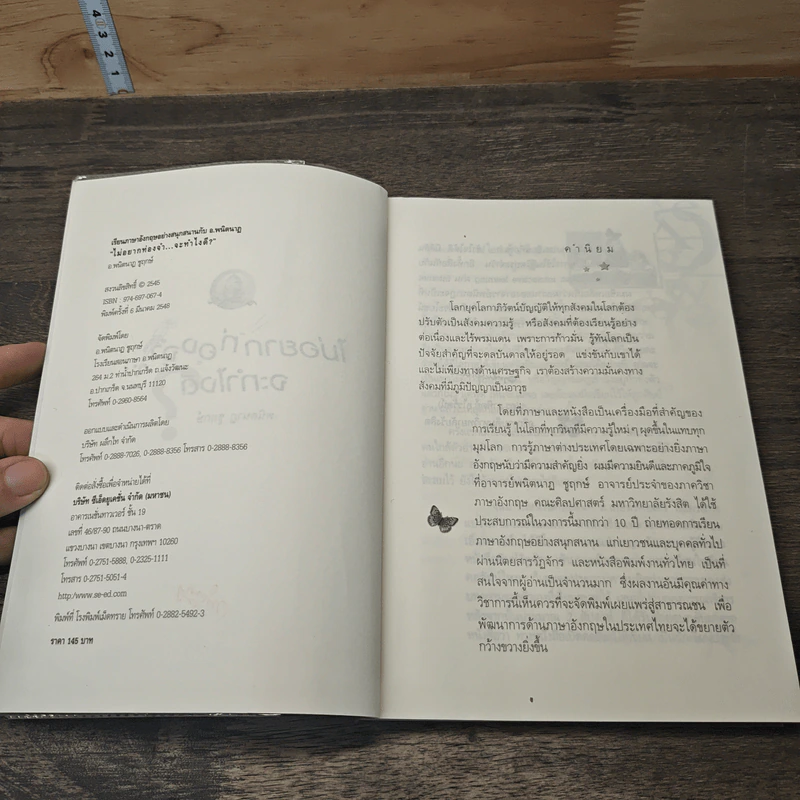 4 3 2 1
เรียนภาษาอังกฤษอย่างสนุกสนานกับ อ.พนิตนาฏ
"ไม่อยากท่องจำ...จะทำไงดี?"
อ.พนิตนาฏ ชูฤกษ์
สงวนลิขสิทธิ์ © 2545
ISBN : 974-697-067-4
พิมพ์ครั้งที่ 6 มีนาคม 2548
จัดพิมพ์โดย
อ.พนิตนาฏ ชูฤกษ์
โรงเรียนสอนภาษา อ.พนิตนาฏ
284 ม.2 ท่าน้ำปากเกร็ด ถ.แจ้งวัฒนะ
อ.ปากเกร็ด จ.นนทบุรี 11120
โทรศัพท์ 0-2960-8564
ออกแบบและดำเนินการผลิตโดย
บริษัท มติ๊กไท จำกัด
โทรศัพท์ 0-2888-7026, 0-2888-8356 โทรสาร 0-2888-8356
ติดต่อสั่งซื้อเพื่อจำหน่ายได้ที่
บริษัท ซีเอ็ดยูเคชั่น จำกัด (มหาชน)
อาคารเนชั่นทาวเวอร์ ชั้น 19
เลขที่ 46/87-90 ถนนบางนา-ตราด
แขวงบางนา เขตบางนา กรุงเทพฯ 10260
โทรศัพท์ 0-2751-5888, 0-2325-1111
โทรสาร 0-2751-5051-4
http:/www.se-ed.com
พิมพ์ที่ โรงพิมพ์เม็ดทราย โทรศัพท์ 0-2882-5492-3
ราคา 145 บาท
คำนิยม
โลกยุคโลกาภิวัตน์บัญญัติให้ทุกสังคมในโลกต้อง
ปรับตัวเป็นสังคมความรู้ หรือสังคมที่ต้องเรียนรู้อย่าง
ต่อเนื่องและไร้พรมแดน เพราะการก้าวมั่น รู้ทันโลกเป็น
ปัจจัยสำคัญที่จะดลบันดาลให้อยู่รอด แข่งขันกับเขาได้
และไม่เพียงทางด้านเศรษฐกิจ เราต้องสร้างความมั่นคงทาง
สังคมที่มีภูมิปัญญาเป็นอาวุธ
โดยที่ภาษาและหนังสือเป็นเครื่องมือที่สำคัญของ
การเรียนรู้ ในโลกที่ทุกวินาทีมีความรู้ใหม่ๆ ผุดขึ้นในแทบทุก
มุมโลก การรู้ภาษาต่างประเทศโดยเฉพาะอย่างยิ่งภาษา
อังกฤษนับว่ามีความสำคัญยิ่ง ผมมีความยินดีและภาคภูมิใจ
ที่อาจารย์พนิตนาฏ ชูฤกษ์ อาจารย์ประจำของภาควิชา
ภาษาอังกฤษ คณะศิลปศาสตร์ มหาวิทยาลัยรังสิต ได้ใช้
ประสบการณ์ในวงการนี้มากกว่า 10 ปี ถ่ายทอดการเรียน
ภาษาอังกฤษอย่างสนุกสนาน แก่เยาวชนและบุคคลทั่วไป
ผ่านนิตยสารวัฏจักร และหนังสือพิมพ์งานทั่วไทย เป็นที่
สนใจจากผู้อ่านเป็นจำนวนมาก ซึ่งผลงานอันมีคุณค่าทาง
วิชาการนี้เห็นควรที่จะจัดพิมพ์เผยแพร่สู่สาธารณชน เพื่อ
พัฒนาการด้านภาษาอังกฤษในประเทศไทยจะได้ขยายตัว
กว้างขวางยิ่งขึ้น
6